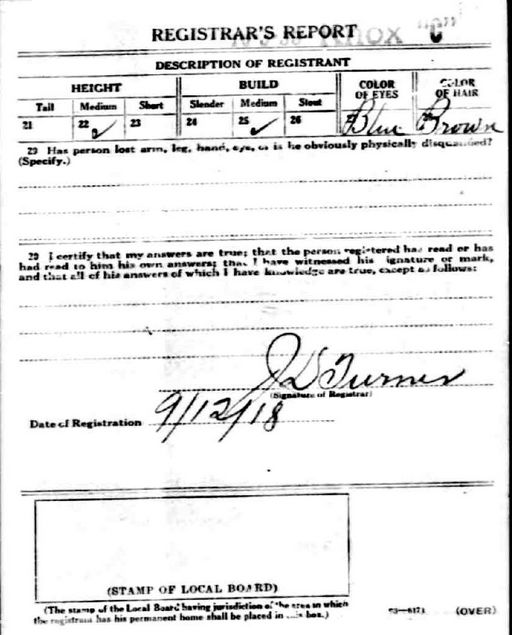 REGISTRAR'S REPORT
DESCRIPTION OF REGISTRANT
HEIGHT BUILD COLOR OF EYES COLOR OF HAIR
Tall Medium Short Slender Medium Stout
21 22 ✓ 23 24 25 ✓ 26 Blue Brown
29 Has person lost arm, leg, hand, eye, or is he obviously physically disqualified?
(Specify.)
30 I certify that my answers are true; that the person registered has read or has
had read to him his own answers; that I have witnessed his signature or mark,
and that all of his answers of which I have knowledge are true, except as follows:
J D Turner
(Signature of Registrar)
Date of Registration 9/12/18
(STAMP OF LOCAL BOARD)
(The stamp of the Local Board having jurisdiction of the area in which
the registrant has his permanent home shall be placed in this box.)
(OVER)